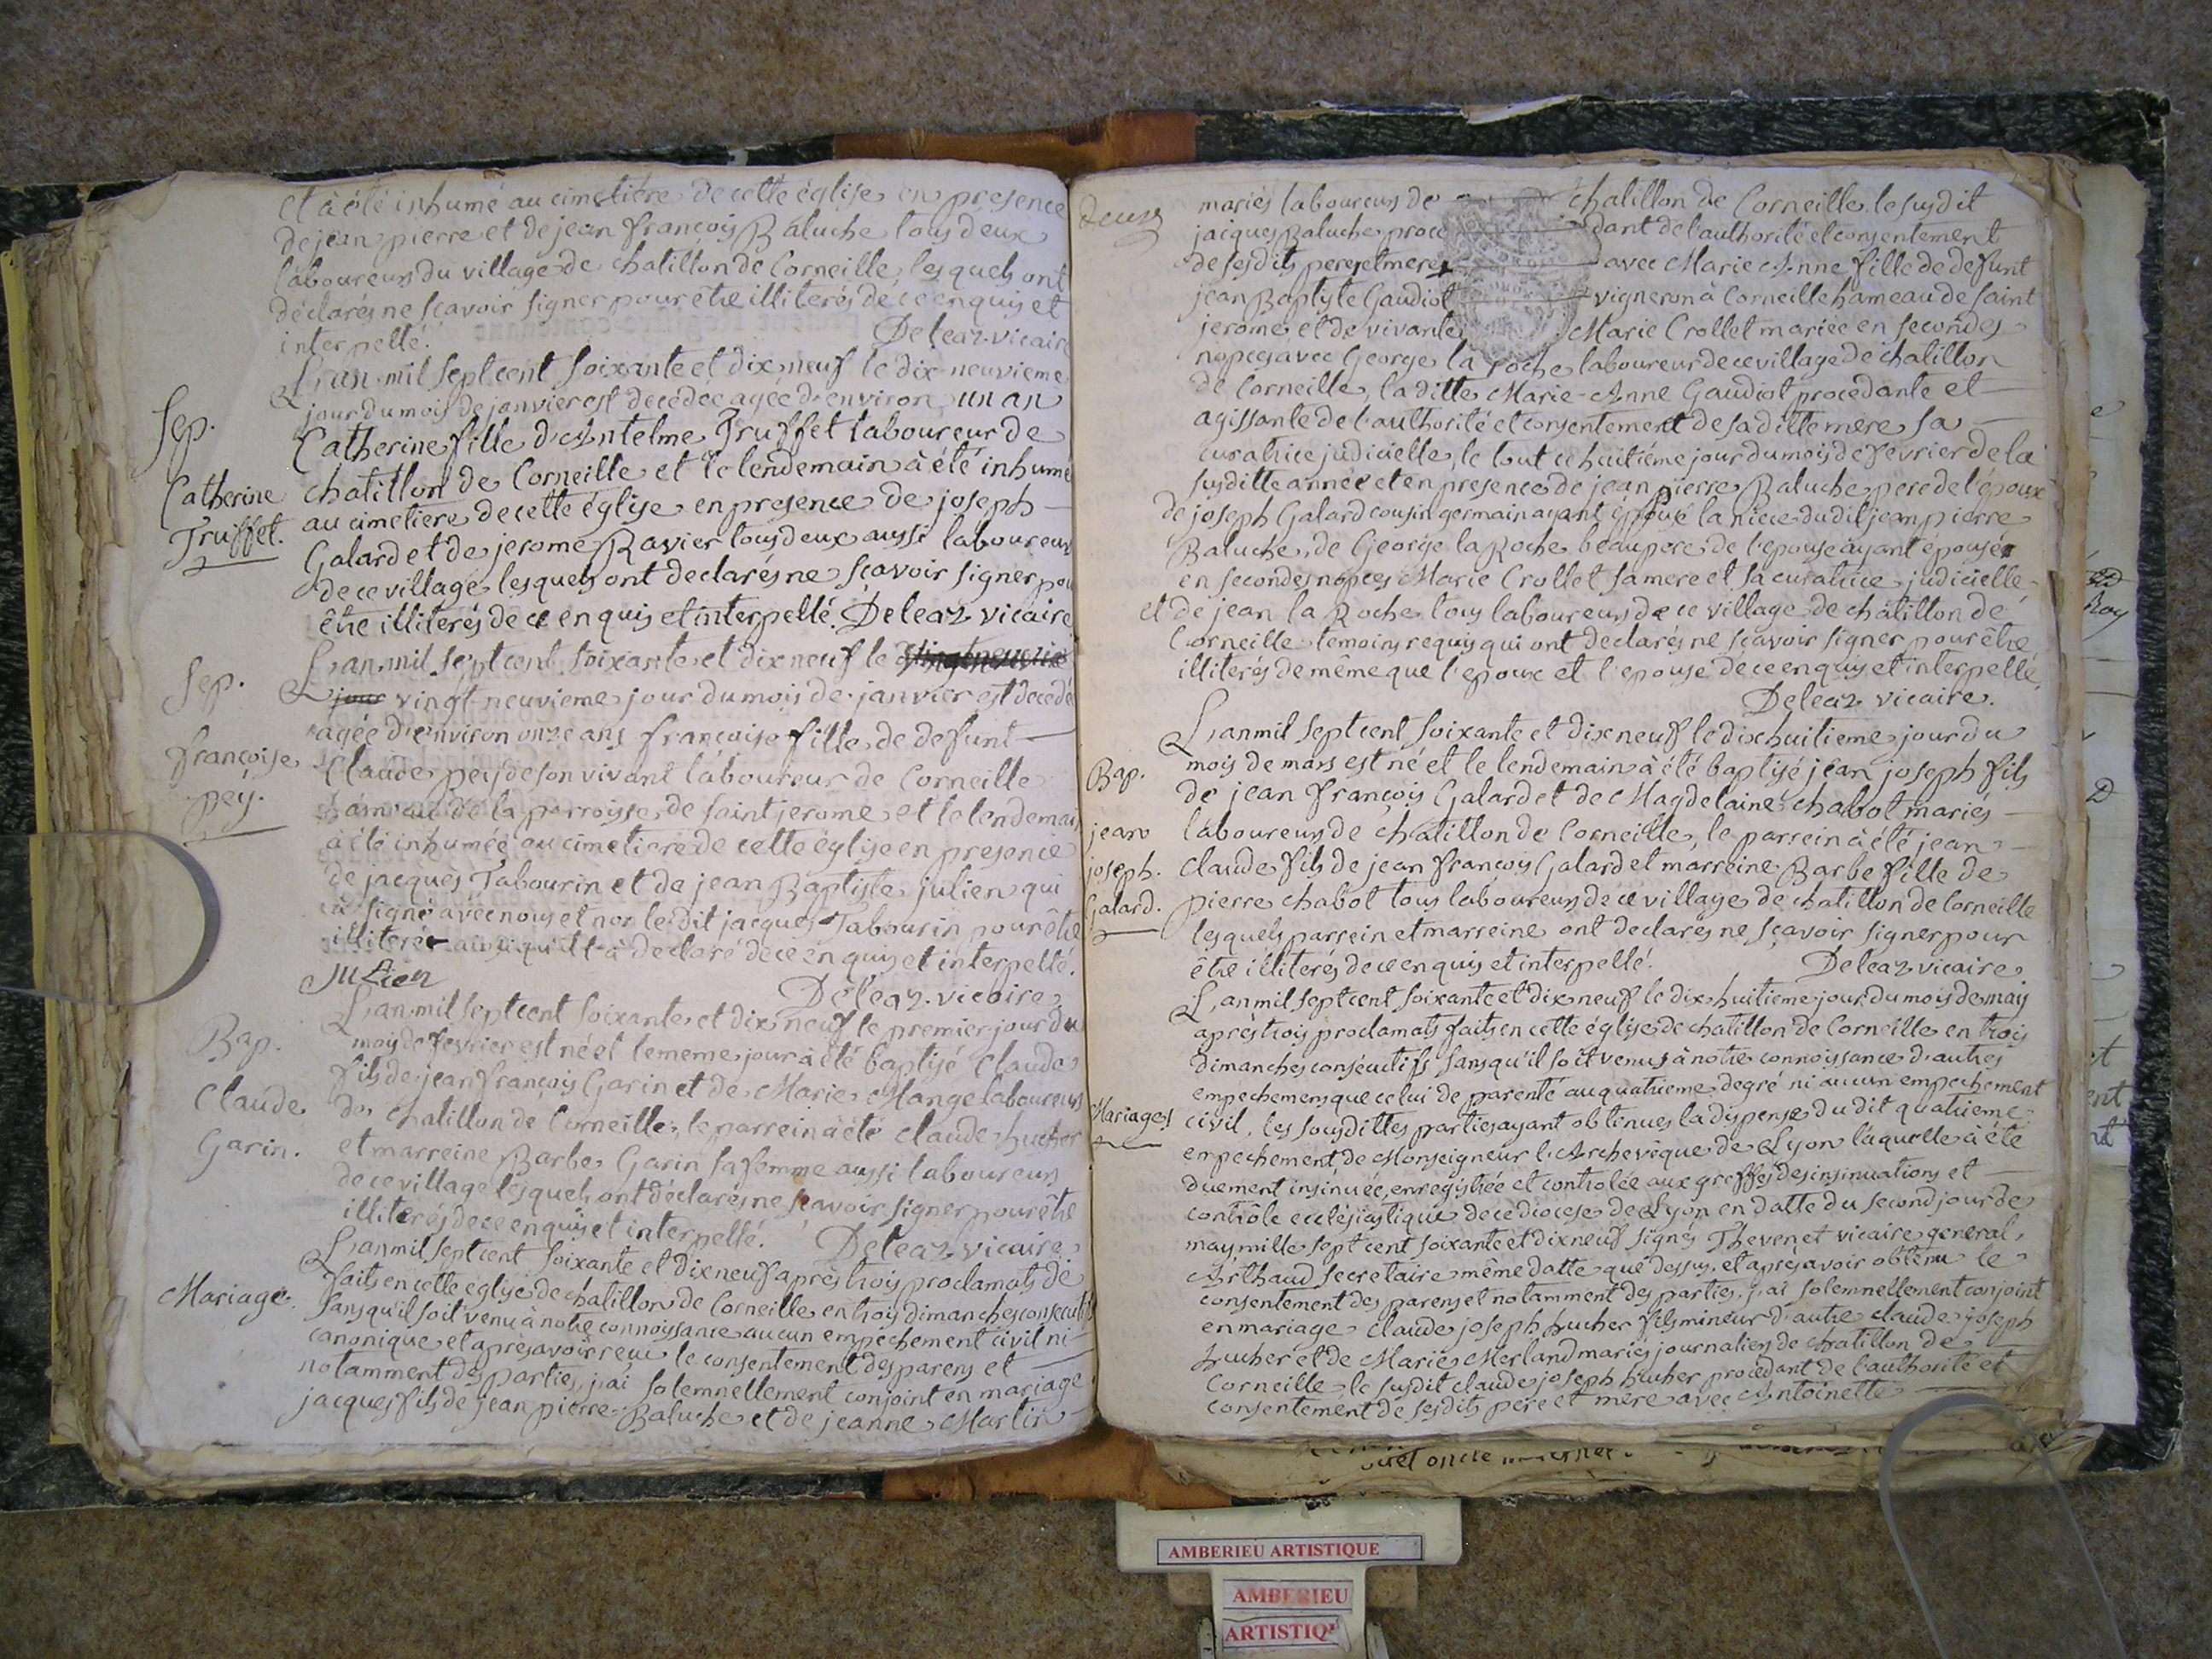 et à été inhumé au cimetière de cette église en presence
de jean pierre et de jean françois Baluche tous deux
laboureurs du village de chatillon de Corneille, lesquels ont
déclarés ne sçavoir signer pour être illiterés de ce enquis et
interpellé. Deleaz vicaire
L'an mil sept cent soixante et dix neuf le dix neuvieme
jour du mois de janvier est decédée agée d'environ un an
Sep.
Catherine
Truffet.
Catherine fille d'Antelme Truffet laboureur de
chatillon de Corneille et le lendemain à été inhumé
au cimetiere de cette église en presence de joseph
Galard et de jerome Ravier tous deux aussi laboureurs
de ce village lesquels ont declarés ne sçavoir signer pou
être illiterés de ce enquis et interpellé. Deleaz vicaire
L'an mil sept cent soixante et dix neuf le
Sep.
françoise
pey.
jour vingt-neuvieme jour du mois de janvier est decedé
agée d'environ onze ans françoise fille de defunt
Claude pey de son vivant laboureur de Corneille
hameau de la parroisse de saint jerome et le lendemain
à été inhumée au cimetiere de cette église en presence
de jacques Tabourin et de jean Baptiste julien qui
à signé avec nous et non le dit jacques Tabourin pour être
illiteré ainsi qu'il à declaré de ce enquis et interpellé.
julien Deleaz vicaire
L'an mil sept cent soixante et dix neuf le premier jour du
Bap.
Claude
Garin.
mois de fevrier est né et le meme jour à été baptisé Claude
fils de jean françois Garin et de Marie Mange laboureurs
de chatillon de Corneille, le parrein à été claude hucher
et marreine Barbe Garin sa femme aussi laboureurs
de ce village lesquels ont déclarés ne sçavoir signer pour être
illiterés de ce enquis et interpellé. Deleaz vicaire
L'an mil sept cent soixante et dix neuf après trois proclamats de
Mariage.
faits en cette église de chatillon de Corneille en trois dimanches consecutifs
sans qu'il soit venu à notre connoissance aucun empêchement civil ni
canonique et après avoir reçu le consentement des parens et
notamment des parties, j'ai solemnellement conjoint en mariage
jacques fils de jean pierre Baluche et de jeanne Martin
deux
mariés laboureurs de chatillon de Corneille, le susdit
jacques Baluche procedant de l'authorité et consentement
de ses dits pere et mere avec Marie Anne fille de defunt
jean Baptiste Gaudiot vigneron à Corneille hameau de saint
jerome et de vivante Marie Crollet mariée en secondes
nopces avec George la roche laboureur de ce village de chatillon
de Corneille, la ditte Marie-Anne Gaudiot procedante et
agissante de l'authorité et consentement de sa ditte mere sa
curatrice judicielle, le tout ce huitième jour du mois de fevrier de la
susditte année et en presence de jean pierre Baluche pere de l'époux
de joseph Galard cousin germain ayant épousé la niece du dit jean pierre
Baluche, de George la Roche beaupere de l'epouse ayant épousé
en secondes nopces Marie Crollet sa mere et sa curatrice judicielle
et de jean la Roche tous laboureurs de ce village de chatillon de
Corneille temoins requis qui ont declarés ne sçavoir signer pour être
illiterés de même que l'epoux et l'epouse de ce enquis et interpellé.
Deleaz vicaire.
L'an mil sept cent soixante et dix neuf le dix huitieme jour du
Bap.
jean
joseph.
Galard.
mois de mars est né et le lendemain à été baptisé jean joseph fils
de jean françois Galard et de Magdelaine chabot mariés
laboureurs de chatillon de Corneille, le parrein à été jean
claude fils de jean françois Galard et marreine Barbe fille de
pierre chabot tous laboureurs de ce village de chatillon de Corneille
lesquels parrein et marreine ont declarés ne sçavoir signer pour
être illiterés de ce enquis et interpellé. Deleaz vicaire
L'an mil sept cent soixante et dix neuf le dix huitieme jour du mois de may
après trois proclamats faits en cette église de chatillon de Corneille en trois
dimanches consécutifs sans qu'il soit venus à notre connoissance d'autres
empechemens que celui de parenté au quatrieme degré ni aucun empechement
Mariages
civil, les sousdittes parties ayant obtenues la dispense du dit quatrieme
empechement, de Monseigneur l'Archevêque de Lyon laquelle à été
duement insinuée, enregistrée et controlée aux greffes des insinuations et
contrôle ecclésiastique de ce diocese de Lyon en datte du second jour de
may mille sept cent soixante et dix neuf signés Thevenet vicaire general,
Arthaud secretaire même datte que dessus, et après avoir obtenu le
consentement des parens et notamment des parties, j'ai solemnellement conjoint
en mariage claude joseph hucher fils mineur d'autre claude joseph
hucher et de Marie Merland mariés journaliers de chatillon de
Corneille le susdit claude joseph hucher procedant de l'authorité et
consentement de ses dits pere et mere avec Antoinette
AMBERIEU ARTISTIQUE
AMBERIEU
ARTISTIQ